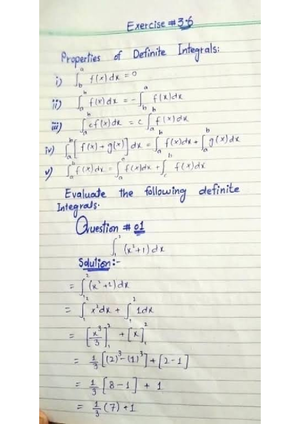 Exercise # 3.6
Properties of Definite Integrals:
i) ∫_a^a f(x)dx = 0
ii) ∫_a^b f(x)dx = -∫_b^a f(x)dx
iii) ∫_a^b cf(x)dx = c∫_a^b f(x)dx
iv) ∫_a^b [f(x) + g(x)]dx = ∫_a^b f(x)dx + ∫_a^b g(x)dx
v) ∫_a^b f(x)dx = ∫_a^c f(x)dx + ∫_c^b f(x)dx
Evaluate the following definite
Integrals.
Question # 01
∫_1^2 (x²+1)dx
Solution:-
= ∫_1^2 (x²+1)dx
= ∫_1^2 x²dx + ∫_1^2 1dx
= [x³/3]_1^2 + [x]_1^2
= 1/3 [(2)³-(1)³] + [2-1]
= 1/3 [8-1] + 1
= 1/3 (7) + 1